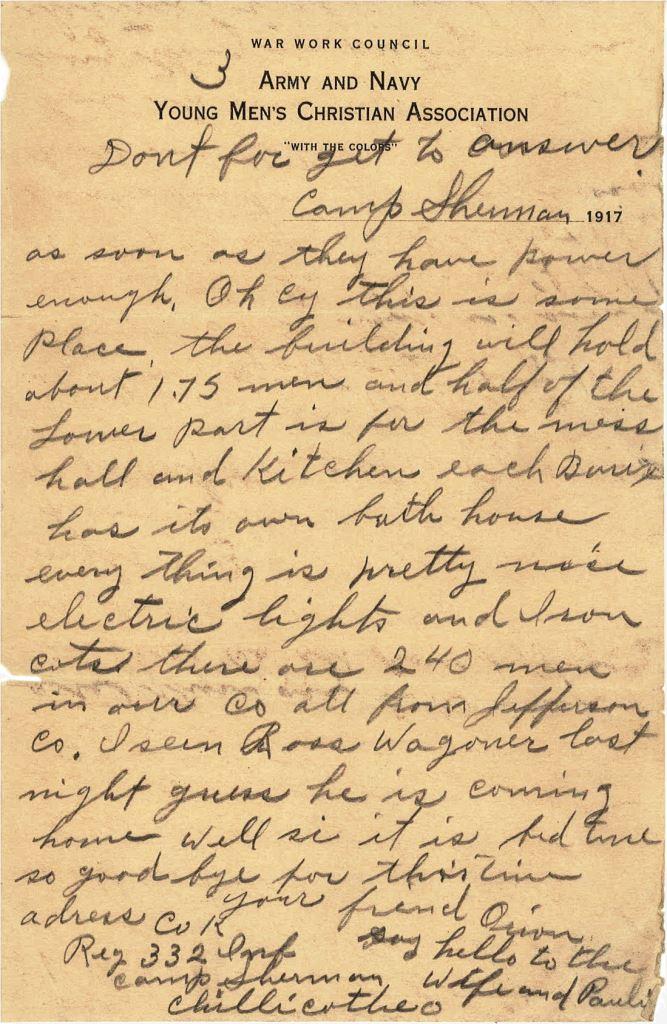 WAR WORK COUNCIL
3
ARMY AND NAVY
YOUNG MEN'S CHRISTIAN ASSOCIATION
"WITH THE COLORS"
Dont for get to answer
Camp Sherman 1917
as soon as they have power
enough. Oh Cy this is some
place, the building will hold
about 175 men and half of the
Lower part is for the mess
hall and Kitchen each
has its own bath house
every thing is pretty
electric lights and Iron
cots. there are 240 men
in our Co all from Jefferson
Co. I seen Ross Wagoner last
night guess he is coming
home well si it is bed time
so good bye for this time
your friend Orion
adress Co K
Reg 332 Inf
Camp Sherman
Chillicothe O
say hello to the
Wife and